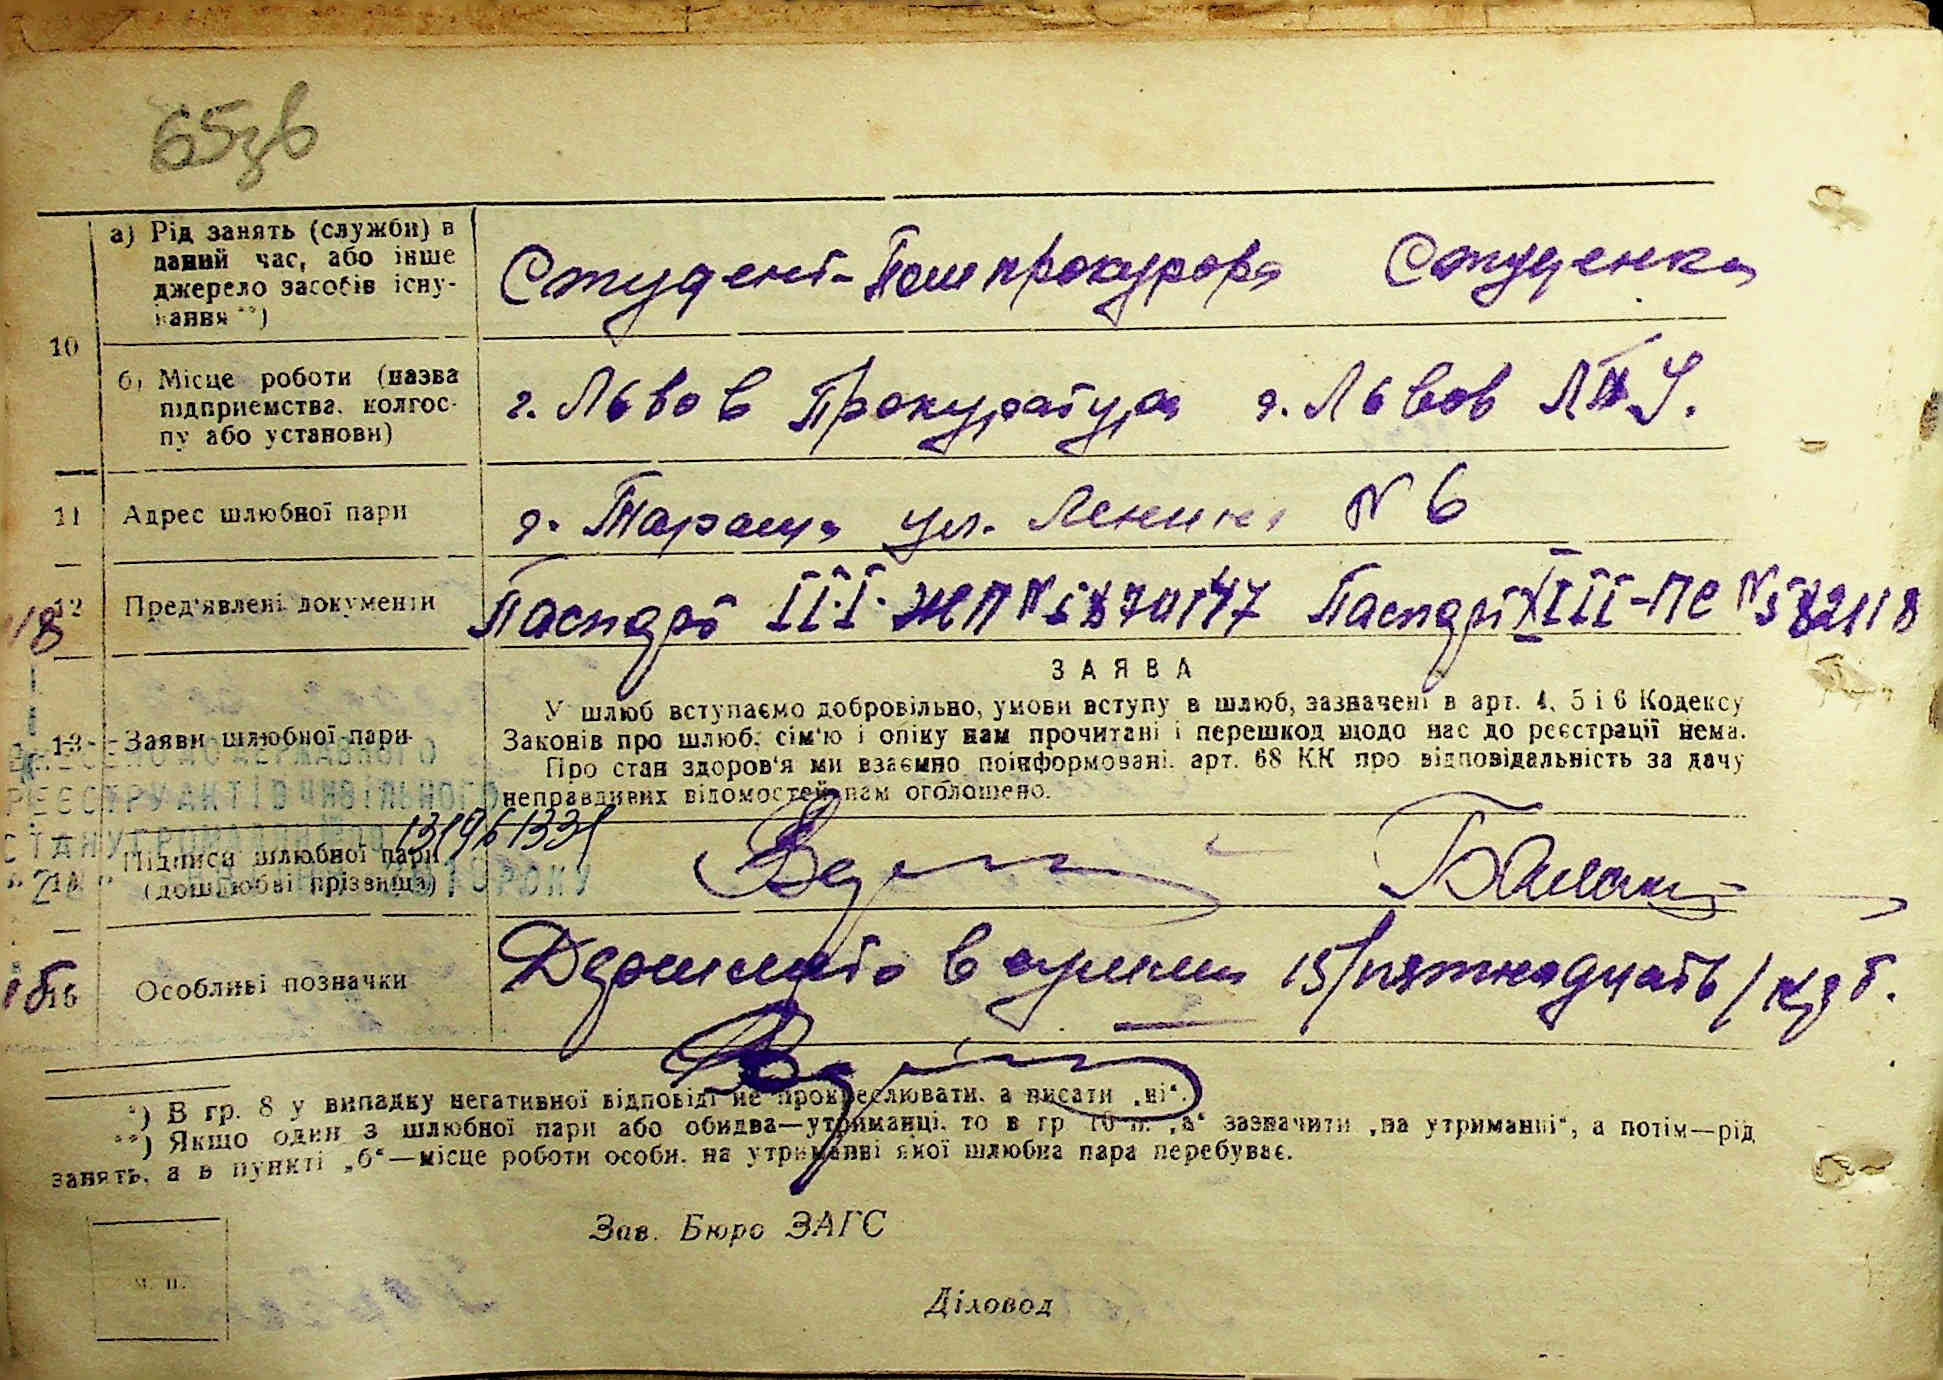 65зв
а) Рід занять (служби) в
даний час, або інше
джерело засобів існу-
вання **)
Студент-Пом прокурора Студентка
10
б) Місце роботи (назва
підприємства, колгос-
пу або установи)
г. Львов Прокуратура г. Львов
11 Адрес шлюбної пари
г. Тараща ул. Ленина N 6
12 Пред'явлені документи
Паспорт III-ЖП Паспорт XIII-ПС N 582118
ЗАЯВА
13 Заяви шлюбної пари
У шлюб вступаємо добровільно, умови вступу в шлюб, зазначені в арт. 4, 5 і 6 Кодексу
Законів про шлюб, сім'ю і опіку нам прочитані і перешкод щодо нас до реєстрації нема.
Про стан здоров'я ми взаємно поінформовані, арт. 68 КК про відповідальність за дачу
неправдивих відомостей нам оголошено.
ВНЕСЕНО ДО ДЕРЖАВНОГО
РЕЄСТРУ АКТІВ ЦИВІЛЬНОГО
СТАНУ ГРОМАДЯН
РОКУ
14 Підписи шлюбної пари
(дошлюбні прізвища)
15 Особливі позначки
в сумме 15/пятнадцать/
*) В гр. 8 у випадку негативної відповіді не прокреслювати, а писати „ні“.
**) Якщо один з шлюбної пари або обидва—утриманці, то в гр 10 п. „а“ зазначити „на утриманні“, а потім—рід
занять, а в пункті „б“—місце роботи особи, на утриманні якої шлюбна пара перебуває.
Зав. Бюро ЗАГС
м. п.
Діловод